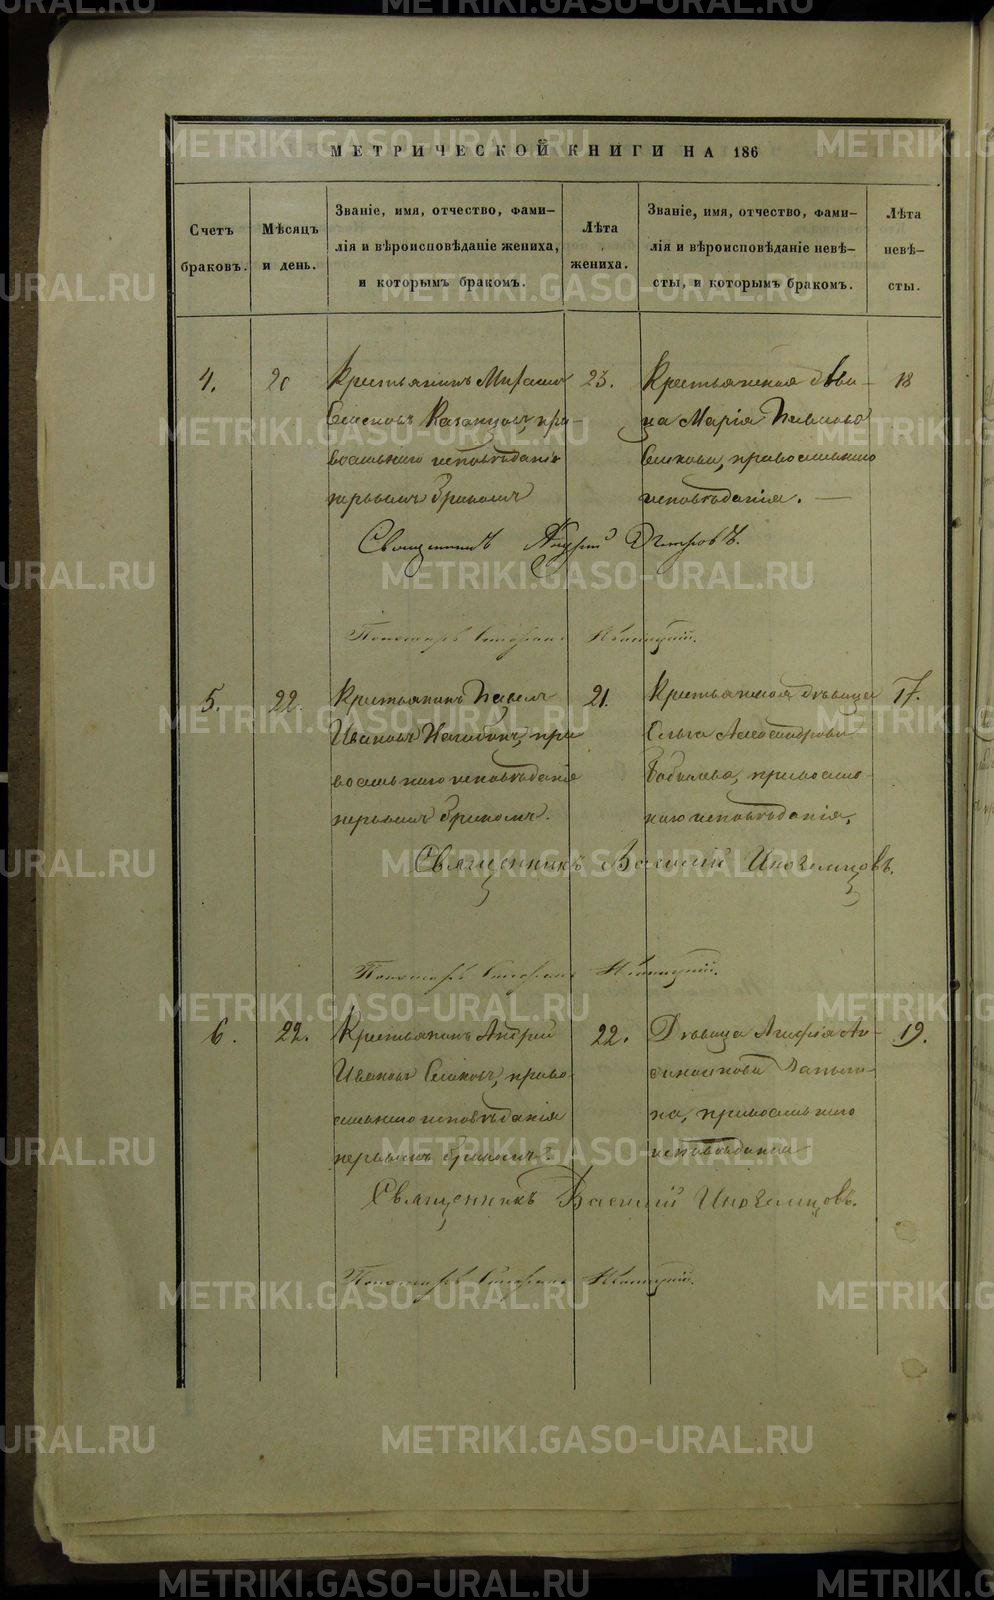 МЕТРИЧЕСКОЙ КНИГИ НА 186
Счетъ браковъ.
Мѣсяцъ и день.
Званіе, имя, отчество, фами-
лія и вѣроисповѣданіе жениха,
и которымъ бракомъ.
Лѣта жениха.
Званіе, имя, отчество, фами-
лія и вѣроисповѣданіе невѣ-
сты, и которымъ бракомъ.
Лѣта
невѣ-
сты.
4.
20
Крестьянинъ Михаилъ
Казанцовъ, пра-
вославнаго исповѣданія
первымъ бракомъ
23.
Крестьянская дѣви-
ца Марія Иванова
православнаго
исповѣданія.
18
Священникъ Андрей
Пономарь Стефанъ
5.
22.
Крестьянинъ Павелъ
Ивановъ пра
вославнаго исповѣданія
первымъ бракомъ.
21.
Крестьянская дѣвица
Ольга Александрова
православ-
наго исповѣданія.
17.
Священникъ Василій Иноземцовъ.
Пономарь Стефанъ
6.
22.
Крестьянинъ Андрей
Ивановъ право-
славнаго исповѣданія
первымъ бракомъ.
22.
Дѣвица
на, православнаго
исповѣданія
19.
Священникъ Василій Иноземцовъ.
Пономарь Стефанъ
METRIKI.GASO-URAL.RU